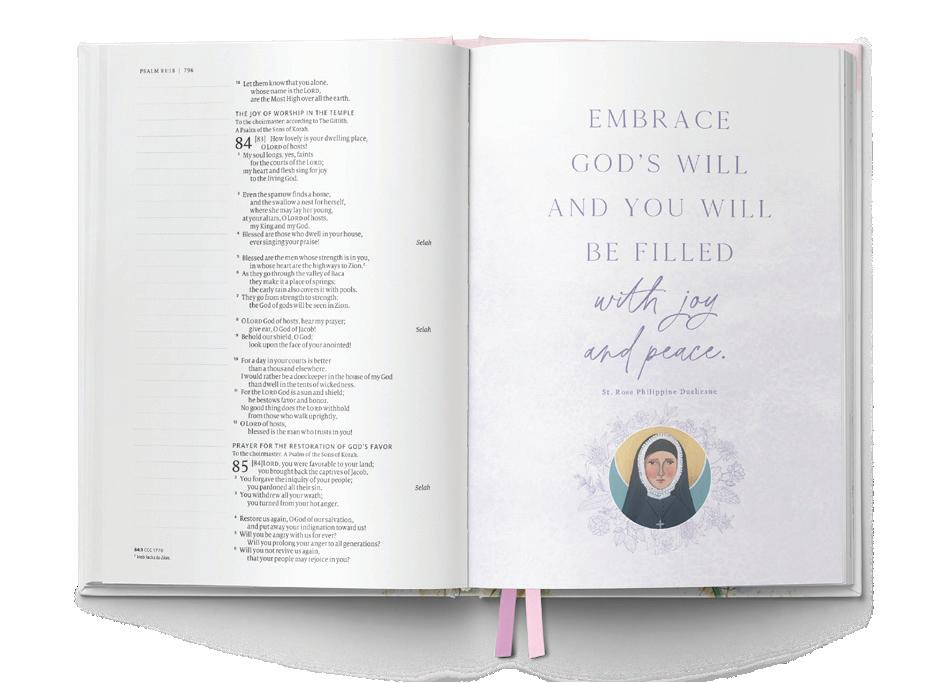 PSALM 83:18 | 796
18 Let them know that you alone,
whose name is the LORD,
are the Most High over all the earth.
THE JOY OF WORSHIP IN THE TEMPLE
To the choirmaster: according to The Gittith.
A Psalm of the Sons of Korah.
84 [83] How lovely is your dwelling place,
O LORD of hosts!
2 My soul longs, yes, faints
for the courts of the LORD;
my heart and flesh sing for joy
to the living God.
3 Even the sparrow finds a home,
and the swallow a nest for herself,
where she may lay her young,
at your altars, O LORD of hosts,
my King and my God.
4 Blessed are those who dwell in your house,
ever singing your praise! Selah
5 Blessed are the men whose strength is in you,
in whose heart are the highways to Zion.
6 As they go through the valley of Baca
they make it a place of springs;
the early rain also covers it with pools.
7 They go from strength to strength;
the God of gods will be seen in Zion.
8 O LORD God of hosts, hear my prayer;
give ear, O God of Jacob! Selah
9 Behold our shield, O God;
look upon the face of your anointed!
10 For a day in your courts is better
than a thousand elsewhere.
I would rather be a doorkeeper in the house of my God
than dwell in the tents of wickedness.
11 For the LORD God is a sun and shield;
he bestows favor and honor.
No good thing does the LORD withhold
from those who walk uprightly.
12 O LORD of hosts,
blessed is the man who trusts in you!
PRAYER FOR THE RESTORATION OF GOD'S FAVOR
To the choirmaster. A Psalm of the Sons of Korah.
85 [84] LORD, you were favorable to your land;
you brought back the captives of Jacob.
2 You forgave the iniquity of your people;
you pardoned all their sin. Selah
3 You withdrew all your wrath;
you turned from your hot anger.
4 Restore us again, O God of our salvation,
and put away your indignation toward us!
5 Will you be angry with us for ever?
Will you prolong your anger to all generations?
6 Will you not revive us again,
that your people may rejoice in you?
84:3 CCC 1770
Heb lacks to Zion.
EMBRACE
GOD'S WILL
AND YOU WILL
BE FILLED
with joy
and peace.
St. Rose Philippine Duchesne